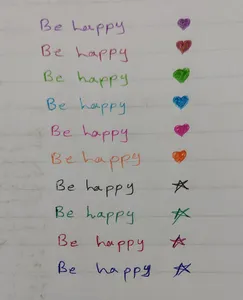 Be happy
Be happy
Be happy
Be happy
Be happy
Be happy
Be happy
Be happy
Be happy
Be happy